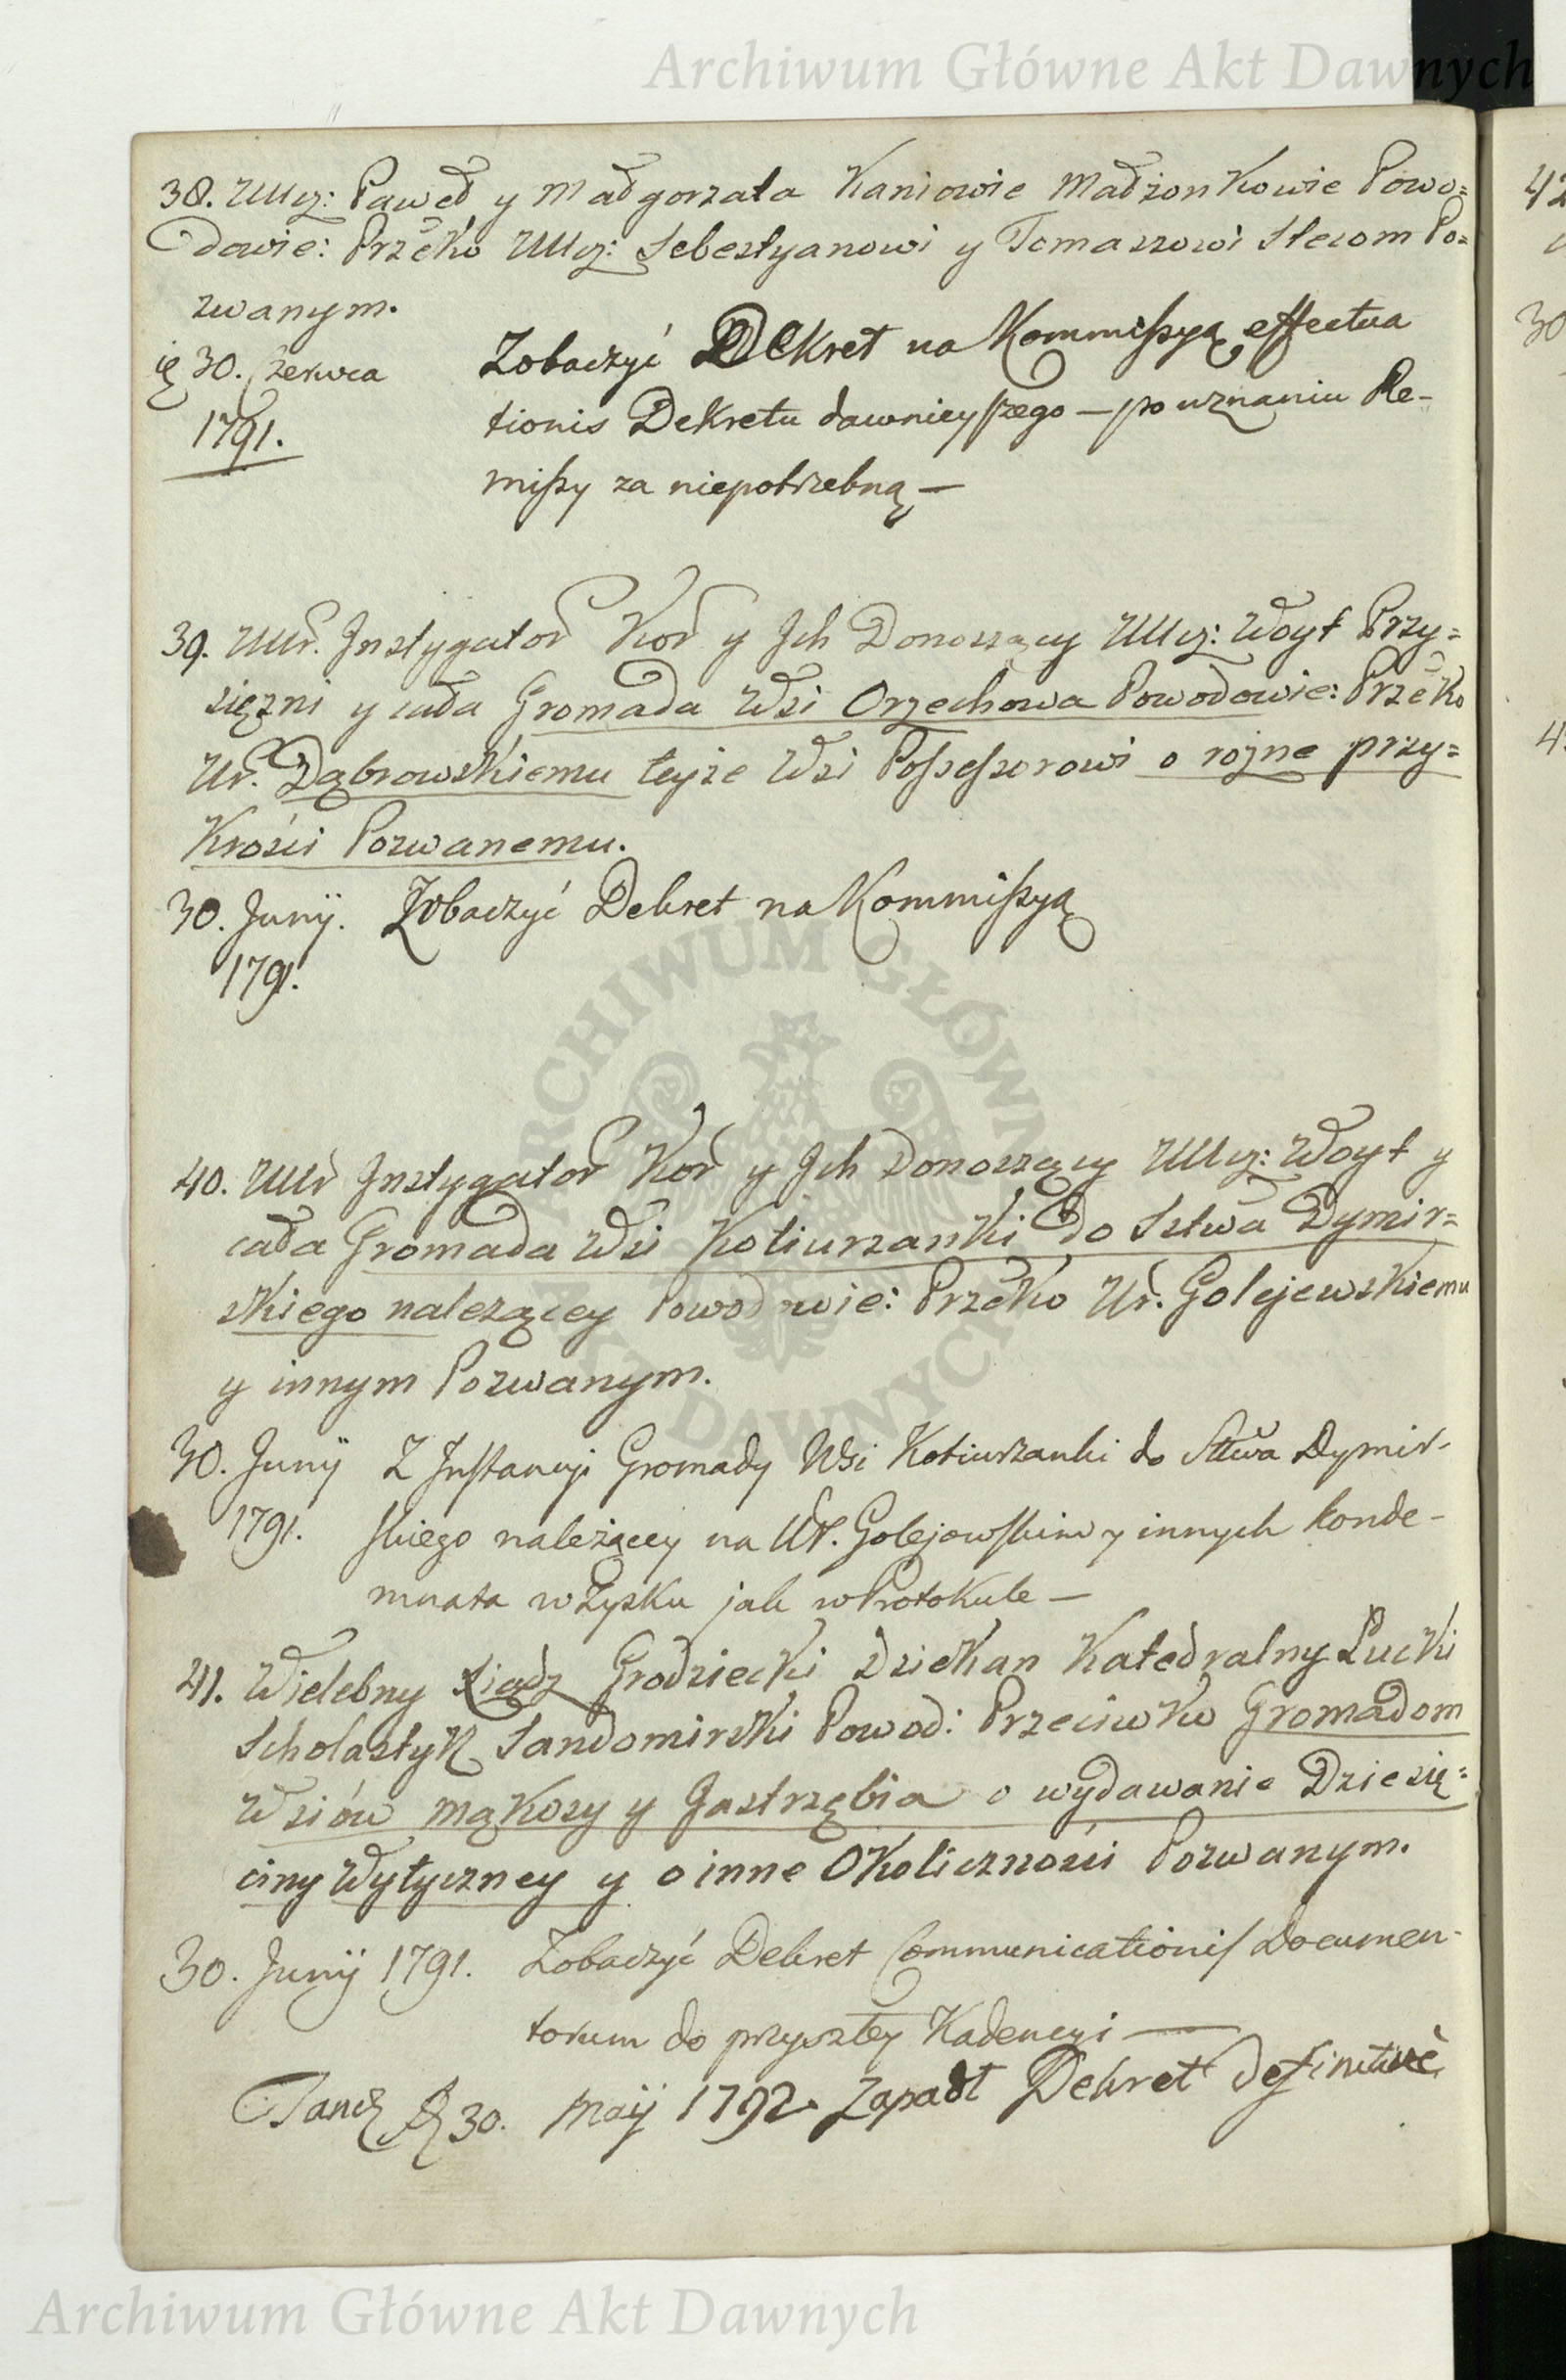 Archiwum Główne Akt Dawnych
38. UUcz: Paweł y Małgorzata Kaniowie Małżonkowie Powo=
dowie: Przeko UUcz: Sebestyanowi y Tomaszowi Stecom Po=
zwanym.
30. Czerwca
1791.
Zobaczyć Dekret na Kommissyą effectua
tionis Dekretu dawnieyszego — po uznaniu Re-
missy za niepotrzebną —
39. UUr. Instygator Kor y Ich Donoszący UUcz: Woyt Przy=
sięzni y cała Gromada Wsi Orzechowa Powodowie: Przeko
Ur. Dąbrowskiemu teyże Wsi Possessorowi o rożne przy=
krości Pozwanemu.
30. Junij. Zobaczyć Dekret na Kommissyą
1791.
40. UUr Instygator Kor y Ich Donoszący UUcz: Woyt y
cała Gromada Wsi Kotiurzanki do Sstwa Dymir=
skiego nalezącey Powodowie: Przeko Ur. Golejewskiemu
y innym Pozwanym.
30. Junij Z Instancyi Gromady Wsi Kotiurzanki do Sttwa Dymir-
1791. skiego należącey na Ur. Golejowskim y innych konde-
mnata w Zysku jak w Protokule —
41. Wielebny Xiądz Grodziecki Dziekan Katedralny Łucki
Scholastyk Sandomirski Powod: Przeciwko Gromadom
Wsiów Mąkosy y Jastrzębia o wydawanie Dziesię=
ciny Wytyczney y o inne Okoliczności Pozwanym.
30. Junij 1791. Zobaczyć Dekret Communicationis Documen-
torum do przyszłey Kadencyi —
30. Maij 1792. Zapadł Dekret definitivè
ARCHIWUM GŁÓWNE AKT DAWNYCH
Archiwum Główne Akt Dawnych